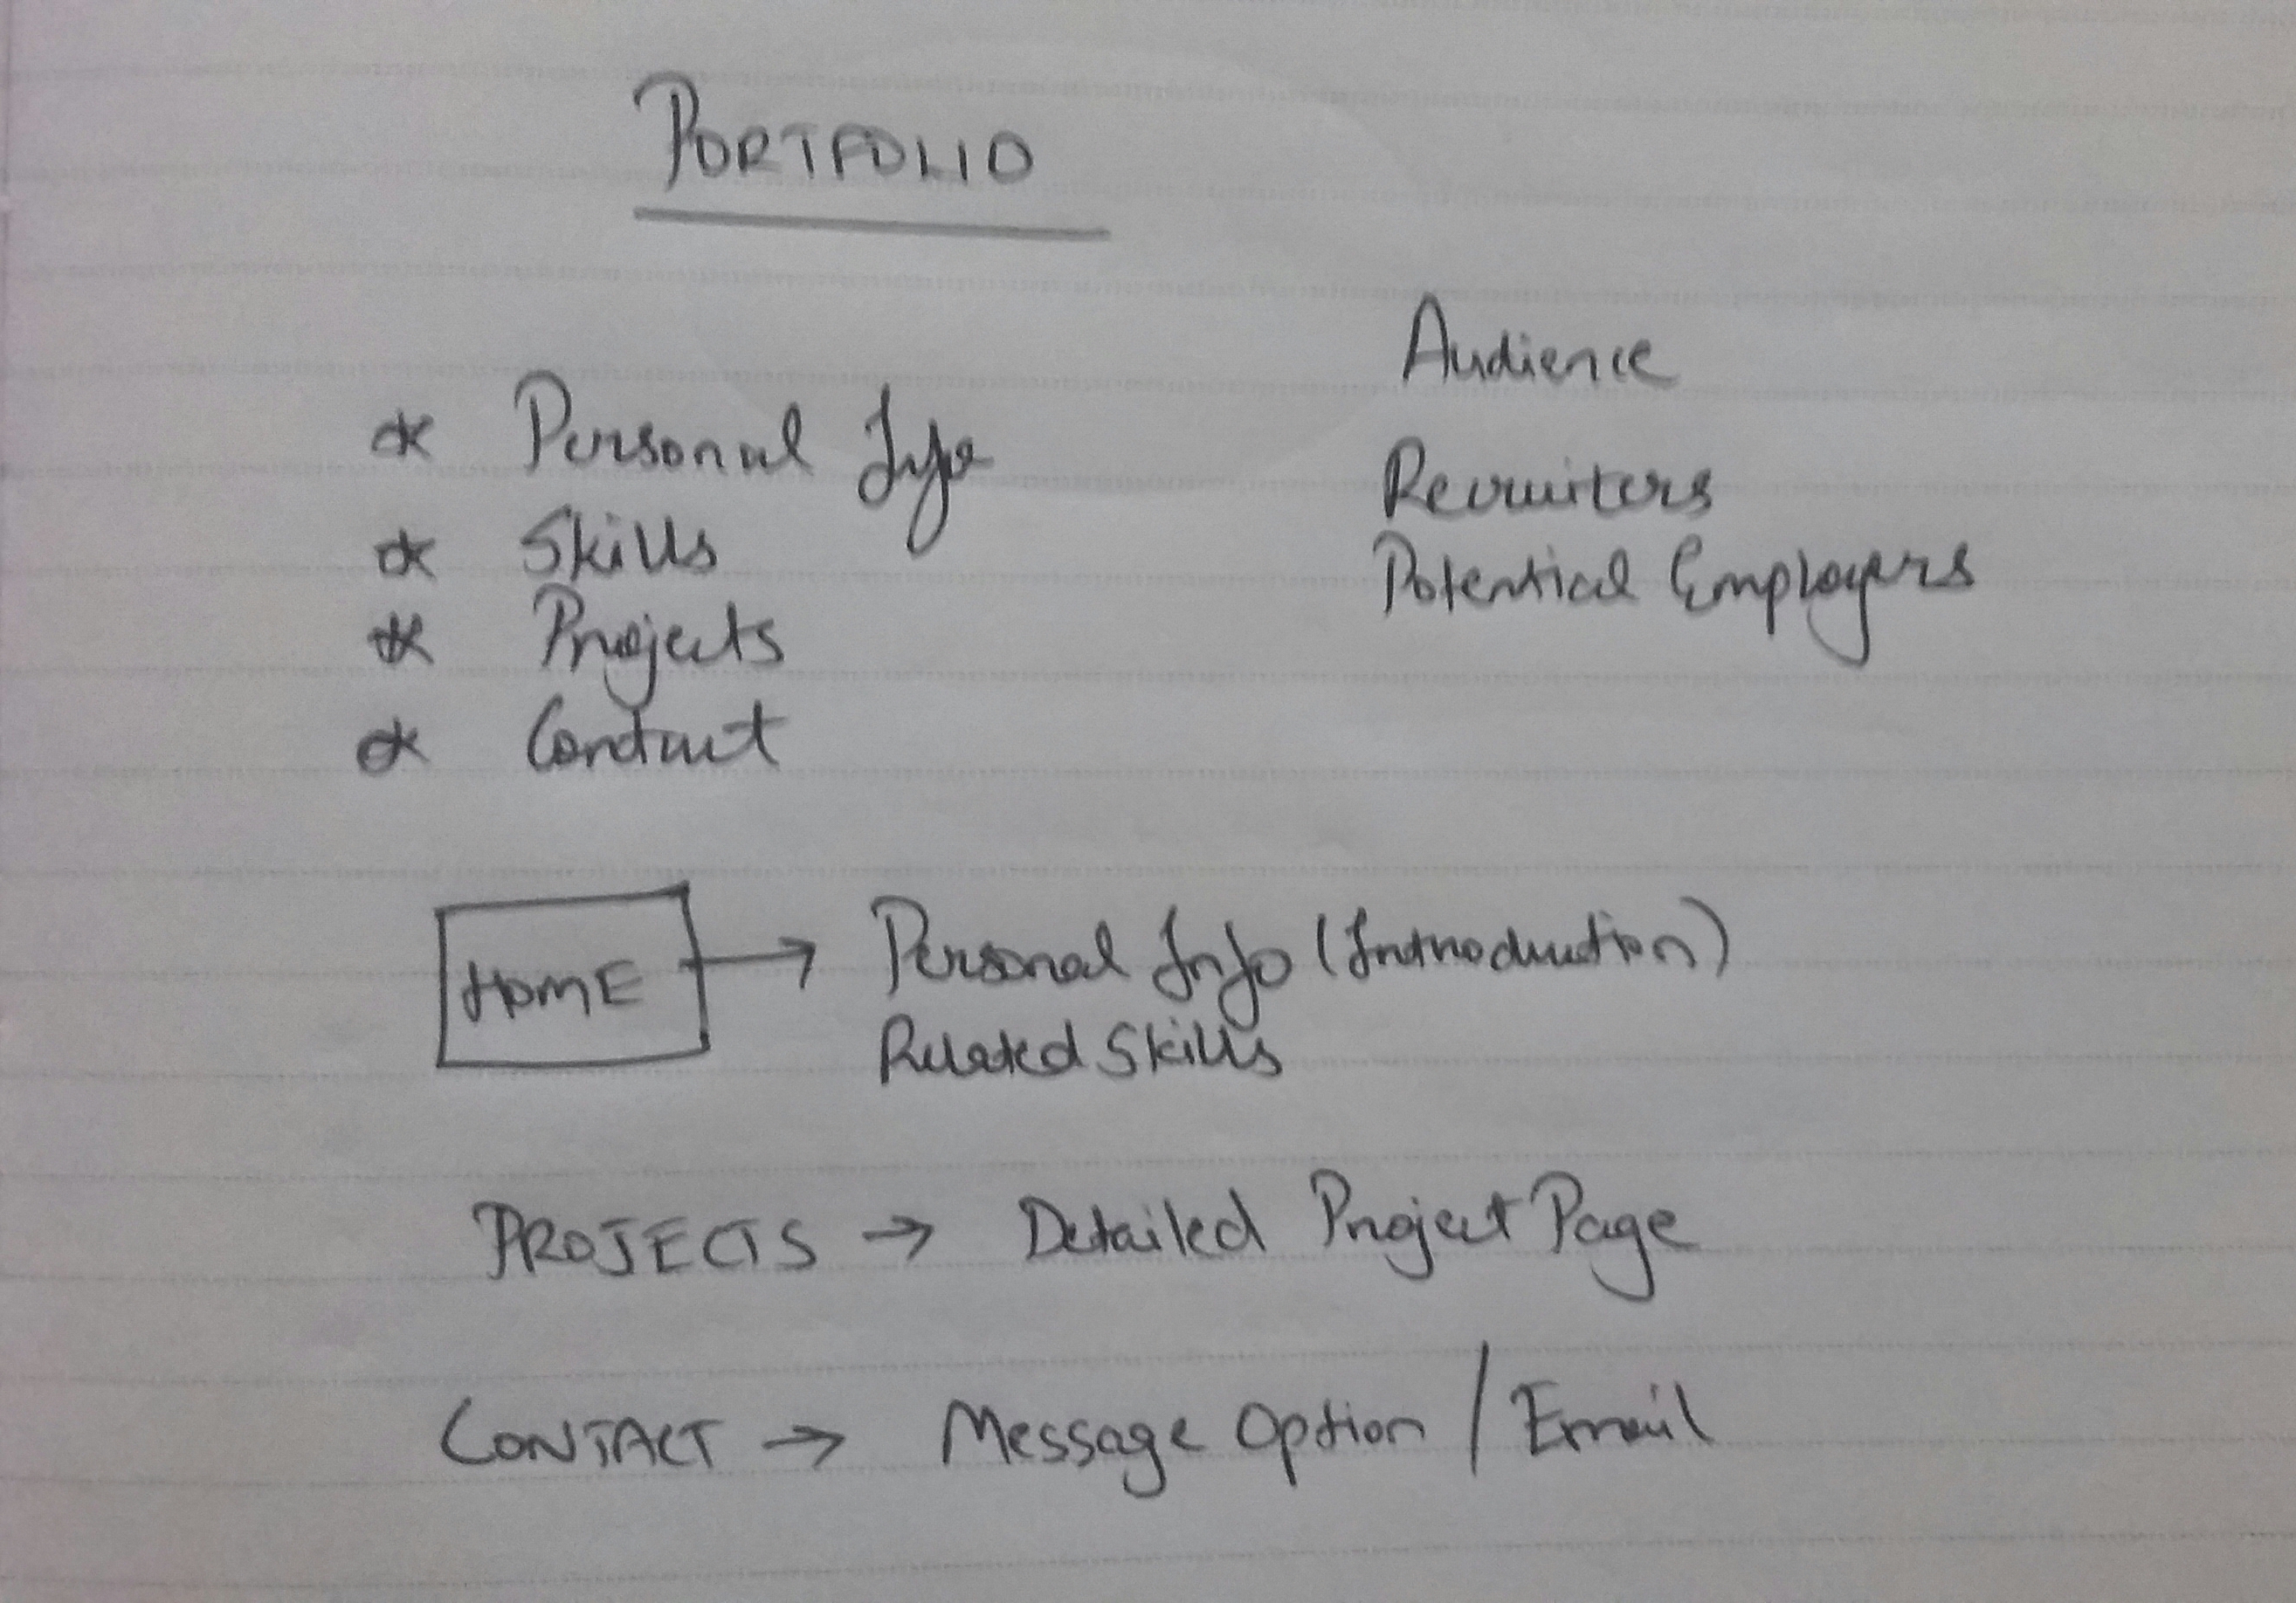 PORTFOLIO
* Personal Info
* Skills
* Projects
* Contact
Audience
Recruiters
Potential Employers
HOME → Personal Info (Introduction)
Related Skills
PROJECTS → Detailed Project Page
CONTACT → Message Option / Email